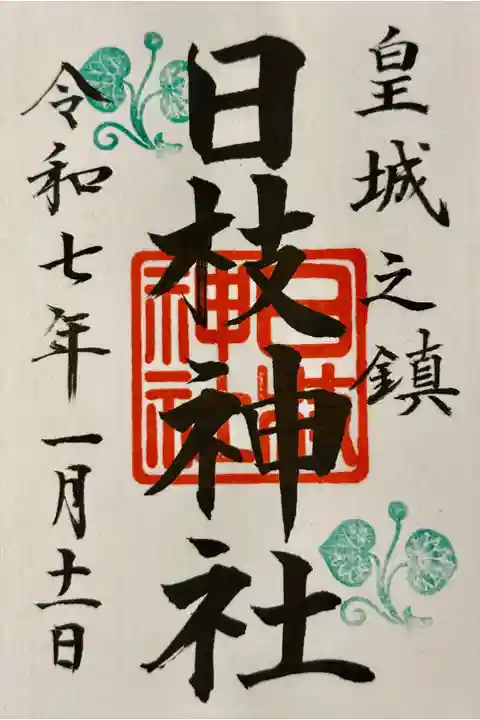 皇城之鎮
日枝神社
令和七年一月十一日
日枝神社